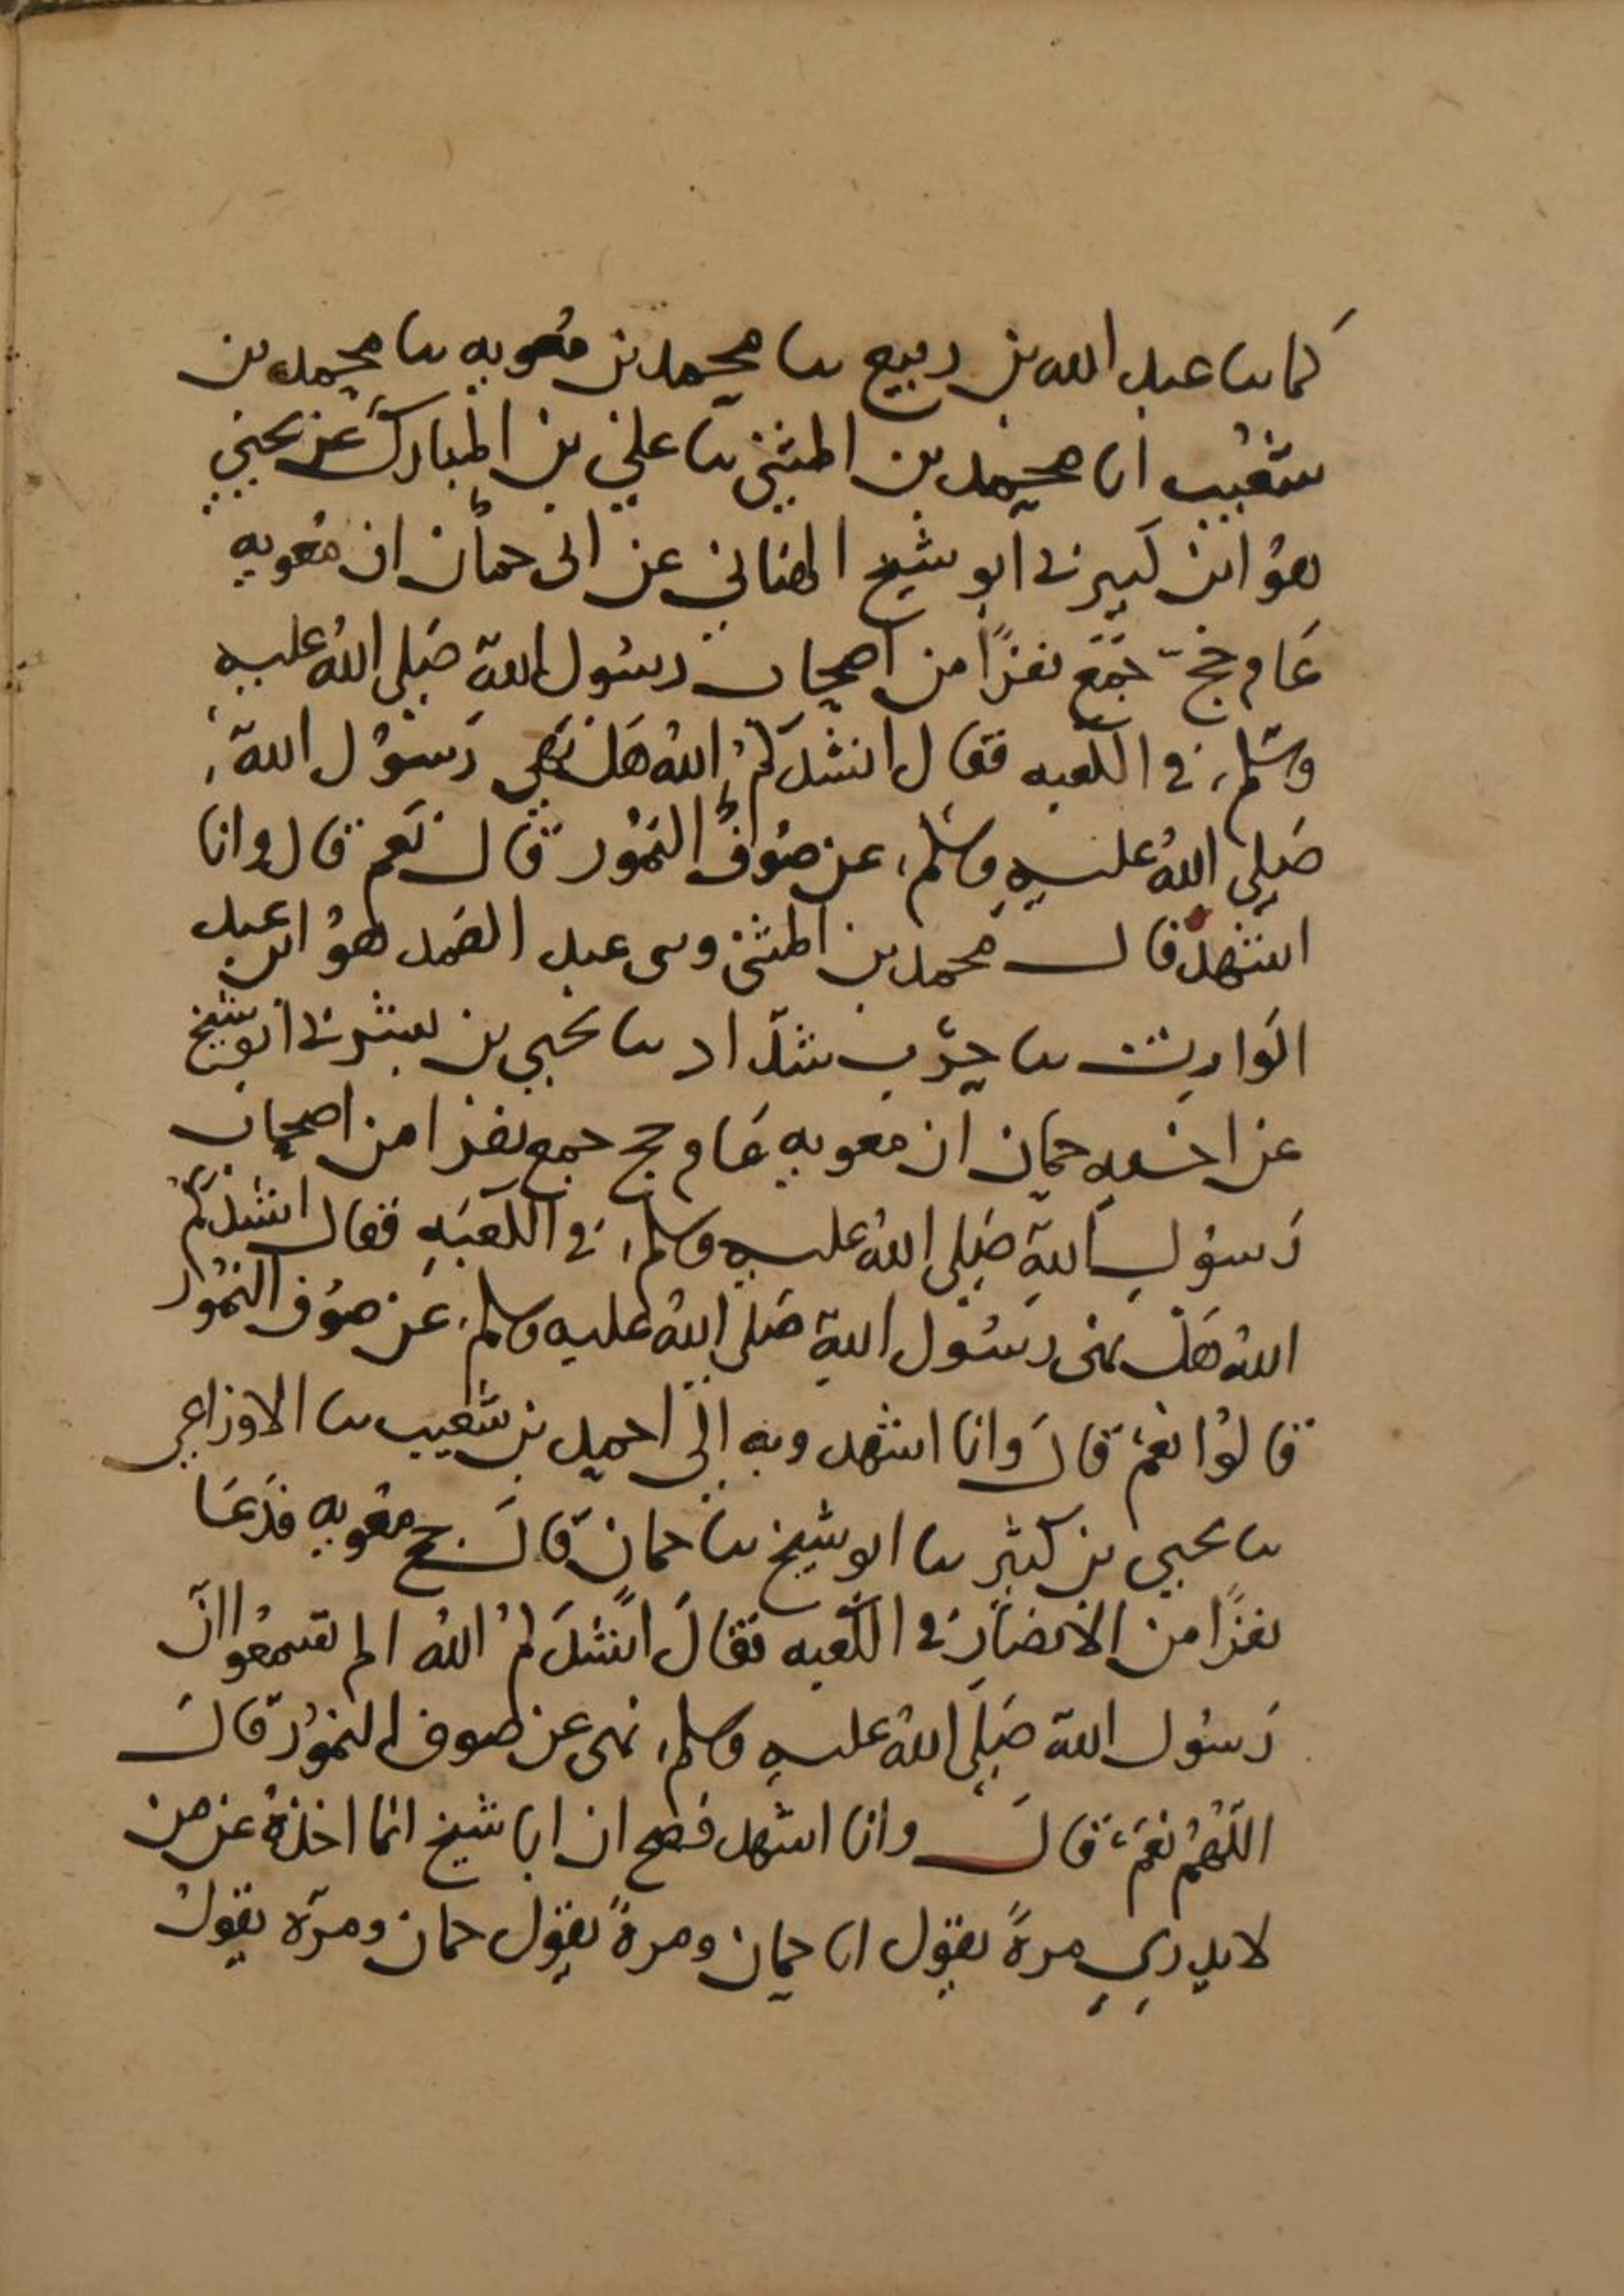 كما نا عبد الله بن ربيع نا محمد بن معويه نا محمد بن
شعيب انا محمد بن المثنى نا علي بن المبارك عن يحيى
هو ابن كبير ني ابو شيخ الهنائي عن ابى حمان ان معويه
عام حج جمع نفرًا من اصحاب رسول الله صَلى اللهُ عليه
وسَلم في الكعبه فقال انشدكمُ اللهُ هَل نَهى رَسُول الله
صَلى اللهُ عليه وسَلم عن صُوف النمُور قال نعم قال وانا
اشهد قال محمد بن المثنى وني عبد الصَمد هوُ ابن عبد
الوارث نا حرب شدّاد نا يحيى بن بشر ني ابو شيخ
عن اخيه حمان ان معويه عام حج جمع نفرا من اصحاب
رَسول الله صَلى اللهُ عليه وسلم في الكعبَه فقال انشدكم
اللهُ هَل نهى رسُول الله صَلى اللهُ عليه وسلم عَن صوُف النمُور
قالوُا نعَم قالَ وانا اشهد وبه الى احمد بن شعيب نا الاوزاعي
نا يحيى بن كثير نا ابو شيخ نا حمان قالَ حج معويه فدَعَا
نفرًا من الانصَار في الكعبه فقالَ انشدَكمُ اللهُ الم تسمعُوا انّ
رَسُول الله صَلى اللهُ عليه وسلم نهى عن صوف النموُر قالَ
اللهُم نعَم قالَ وانا اشهد فصح ان ابا شيخ انما اخذهُ عن من
لا يدري مرةً يقول انا حمان ومرةً يقول حمان ومرّه يقولُ